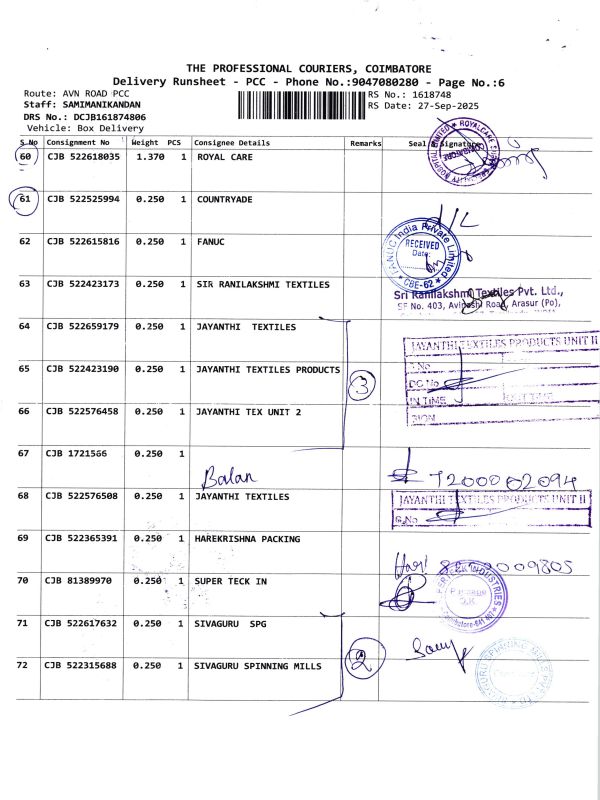 THE PROFESSIONAL COURIERS, COIMBATORE
Delivery Runsheet - PCC - Phone No.:9047080280 - Page No.:6
Route: AVN ROAD PCC
RS No.: 1618748
Staff: SAMIMANIKANDAN
RS Date: 27-Sep-2025
DRS No.: DCJB161874806
Vehicle: Box Delivery
S.No Consignment No Weight PCS Consignee Details Remarks Seal & Signature
60 CJB 522618035 1.370 1 ROYAL CARE
61 CJB 522525994 0.250 1 COUNTRYADE
62 CJB 522615816 0.250 1 FANUC
FANUC India Private Limited
RECEIVED
Date:
CBE-62
63 CJB 522423173 0.250 1 SIR RANILAKSHMI TEXTILES
Sri Ranilakshmi Textiles Pvt. Ltd.,
SF No. 403, Avinashi Road, Arasur (Po),
64 CJB 522659179 0.250 1 JAYANTHI TEXTILES
JAYANTHI TEXTILES PRODUCTS UNIT II
65 CJB 522423190 0.250 1 JAYANTHI TEXTILES PRODUCTS
3
DC No
IN TIME
66 CJB 522576458 0.250 1 JAYANTHI TEX UNIT 2
SIGN
67 CJB 1721566 0.250 1
Balan
68 CJB 522576508 0.250 1 JAYANTHI TEXTILES
JAYANTHI TEXTILES PRODUCTS UNIT II
G.No
69 CJB 522365391 0.250 1 HAREKRISHNA PACKING
70 CJB 81389970 0.250 1 SUPER TECK IN
71 CJB 522617632 0.250 1 SIVAGURU SPG
2
72 CJB 522315688 0.250 1 SIVAGURU SPINNING MILLS